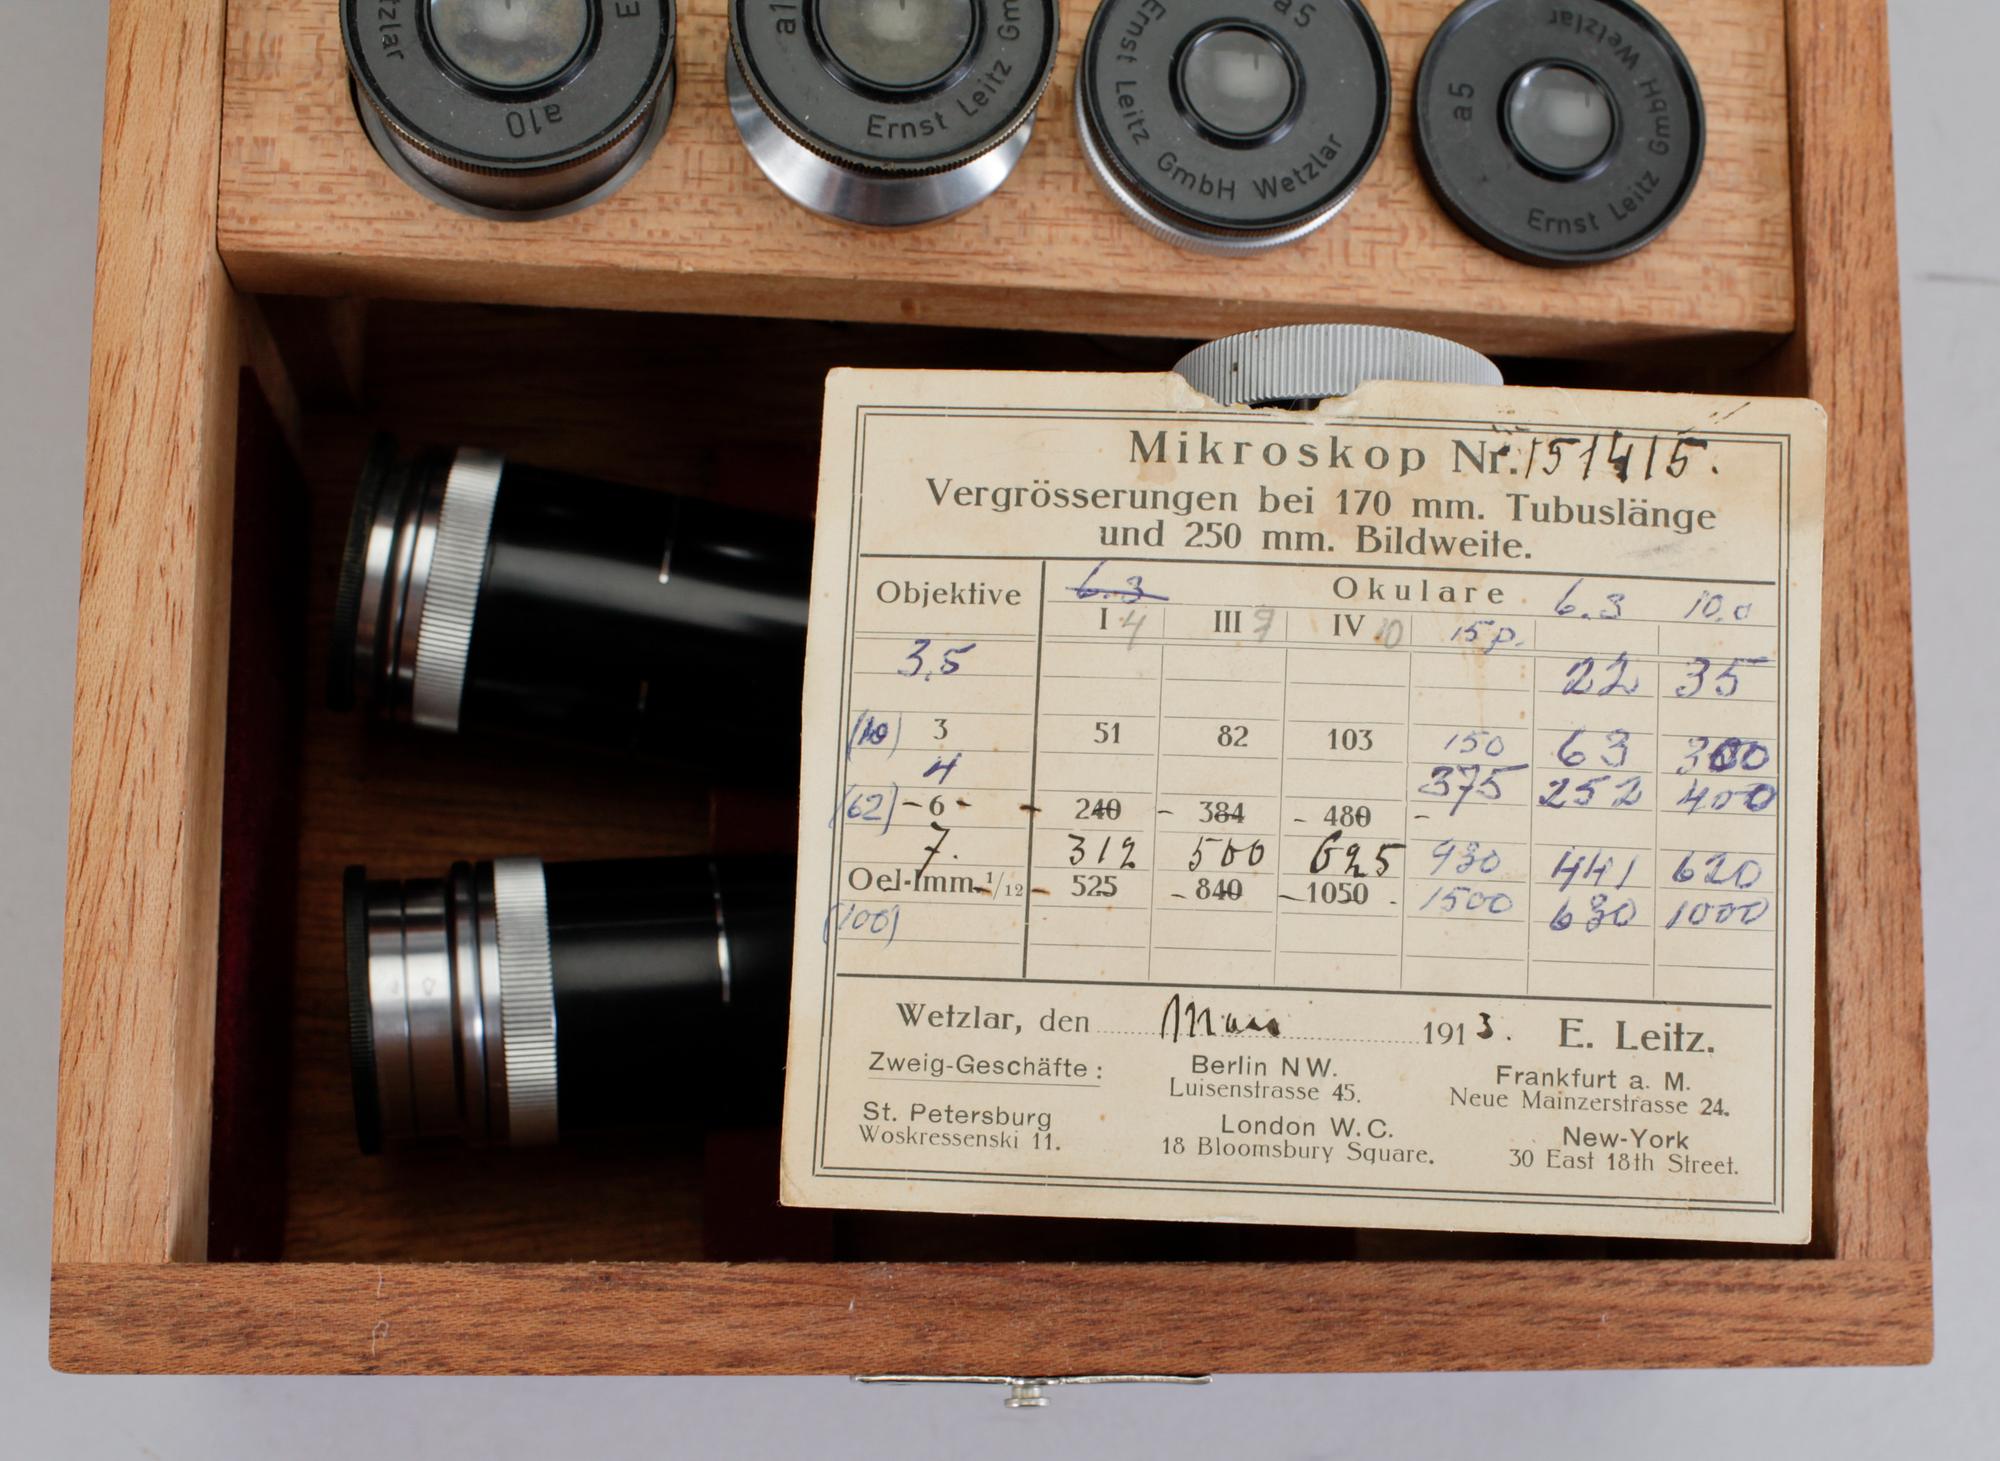 tzlar E
a10
a1
Ernst Leitz Gm
a5
Ernst Leitz GmbH Wetzlar
a5
Ernst Leitz GmbH Wetzlar
Mikroskop Nr. 151415.
Vergrösserungen bei 170 mm. Tubuslänge
und 250 mm. Bildweite.
Objektive 6.3 Okulare 6.3 10.0
I 4 III 7 IV 10 15p.
3,5 22 35
(10) 3 51 82 103 150 63
4 375 252 400
(62) - 6 - 240 - 384 - 480 -
7. 312 500 625 930 441 620
Oel-Imm. 1/12 525 - 840 - 1050 . 1500 630 1000
(100)
Wetzlar, den 1913. E. Leitz.
Zweig-Geschäfte: Berlin NW. Frankfurt a. M.
Luisenstrasse 45. Neue Mainzerstrasse 24.
St. Petersburg London W. C. New-York
Woskressenski 11. 18 Bloomsbury Square. 30 East 18th Street.